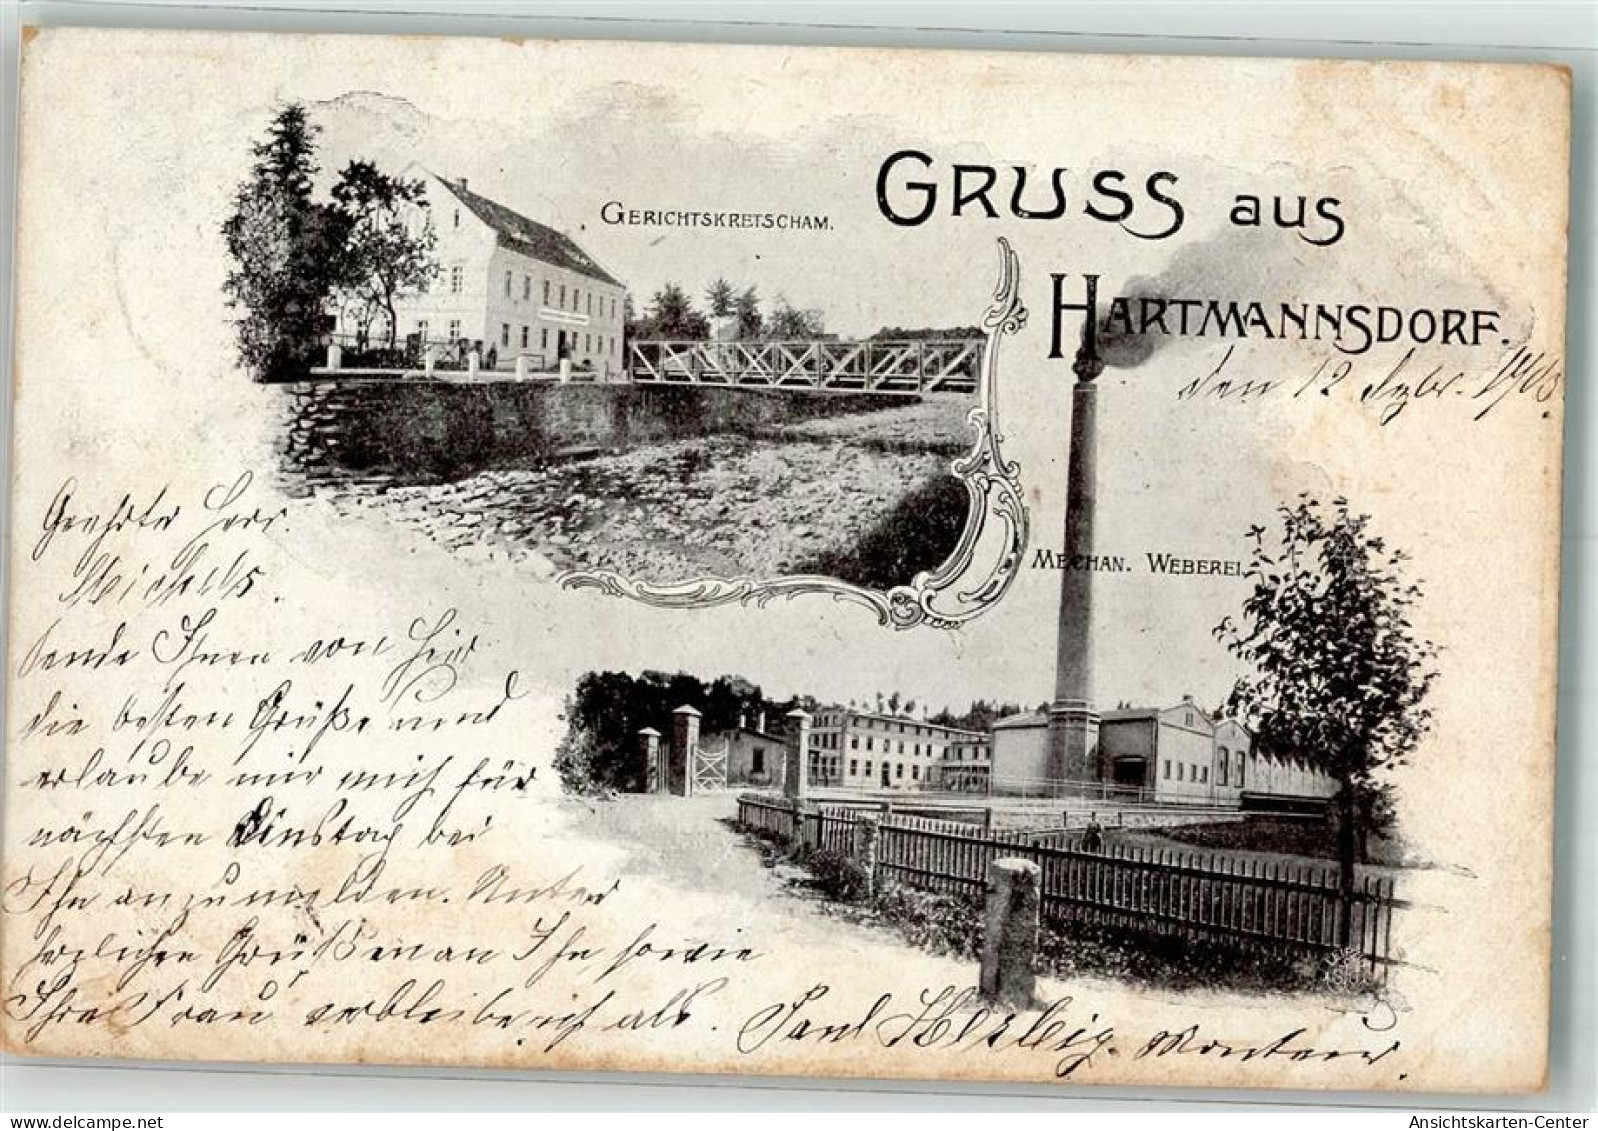 GRUSS aus
HARTMANNSDORF.
GERICHTSKRETSCHAM.
MECHAN. WEBEREI.
den 12 Dzbr.
Geehrter Herr
sende Ihnen von hier
die besten Grüße und
erlaube mir mich für
nächsten Dinstag bei
Ihn anzumelden. Unter
herzlichen Grüßen an Ihn sowie
Ihre Frau verbleibe ich als. Paul Monteur
Ansichtskarten-Center